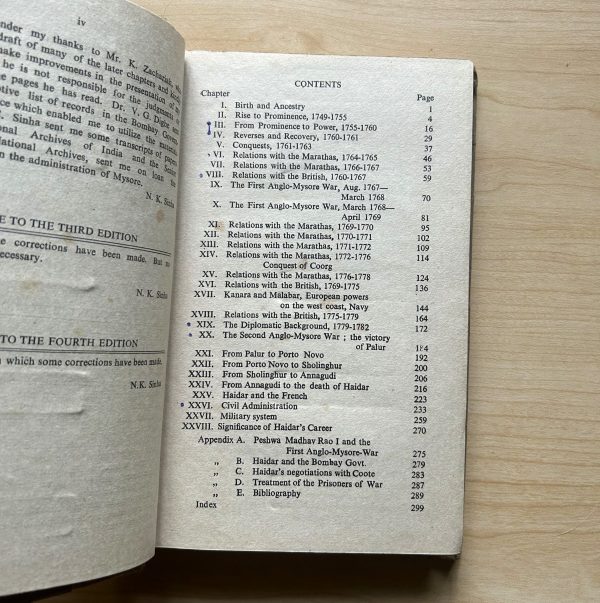 iv
nder my thanks to Mr. K. Zachariah, who
draft of many of the later chapters and
make improvements in the presentation of
he is not responsible for the judgments
e pages he has read. Dr. V. G. Dighe sent
ptive list of records in the Bombay Govern
ce which enabled me to utilize the
. Sinha sent me some transcripts of papers
onal Archives of India and the
National Archives, sent me on loan the
n the administration of Mysore.
N. K. Sinha
E TO THE THIRD EDITION
e corrections have been made. But no
necessary.
N. K. Sinha
TO THE FOURTH EDITION
n which some corrections have been made.
N.K. Sinha
CONTENTS
Chapter Page
I. Birth and Ancestry 1
II. Rise to Prominence, 1749-1755 4
III. From Prominence to Power, 1755-1760 16
IV. Reverses and Recovery, 1760-1761 29
V. Conquests, 1761-1763 37
VI. Relations with the Marathas, 1764-1765 46
VII. Relations with the Marathas, 1766-1767 53
VIII. Relations with the British, 1760-1767 59
IX. The First Anglo-Mysore War, Aug. 1767—
March 1768 70
X. The First Anglo-Mysore War, March 1768—
April 1769 81
XI. Relations with the Marathas, 1769-1770 95
XII. Relations with the Marathas, 1770-1771 102
XIII. Relations with the Marathas, 1771-1772 109
XIV. Relations with the Marathas, 1772-1776 114
Conquest of Coorg
XV. Relations with the Marathas, 1776-1778 124
XVI. Relations with the British, 1769-1775 136
XVII. Kanara and Malabar, European powers
on the west coast, Navy 144
XVIII. Relations with the British, 1775-1779 164
XIX. The Diplomatic Background, 1779-1782 172
XX. The Second Anglo-Mysore War ; the victory
of Palur 184
XXI. From Palur to Porto Novo 192
XXII. From Porto Novo to Sholinghur 200
XXIII. From Sholinghur to Annagudi 206
XXIV. From Annagudi to the death of Haidar 216
XXV. Haidar and the French 223
XXVI. Civil Administration 233
XXVII. Military system 259
XXVIII. Significance of Haidar's Career 270
Appendix A. Peshwa Madhav Rao I and the
First Anglo-Mysore-War 275
„ B. Haidar and the Bombay Govt. 279
„ C. Haidar's negotiations with Coote 283
„ D. Treatment of the Prisoners of War 287
„ E. Bibliography 289
Index 299